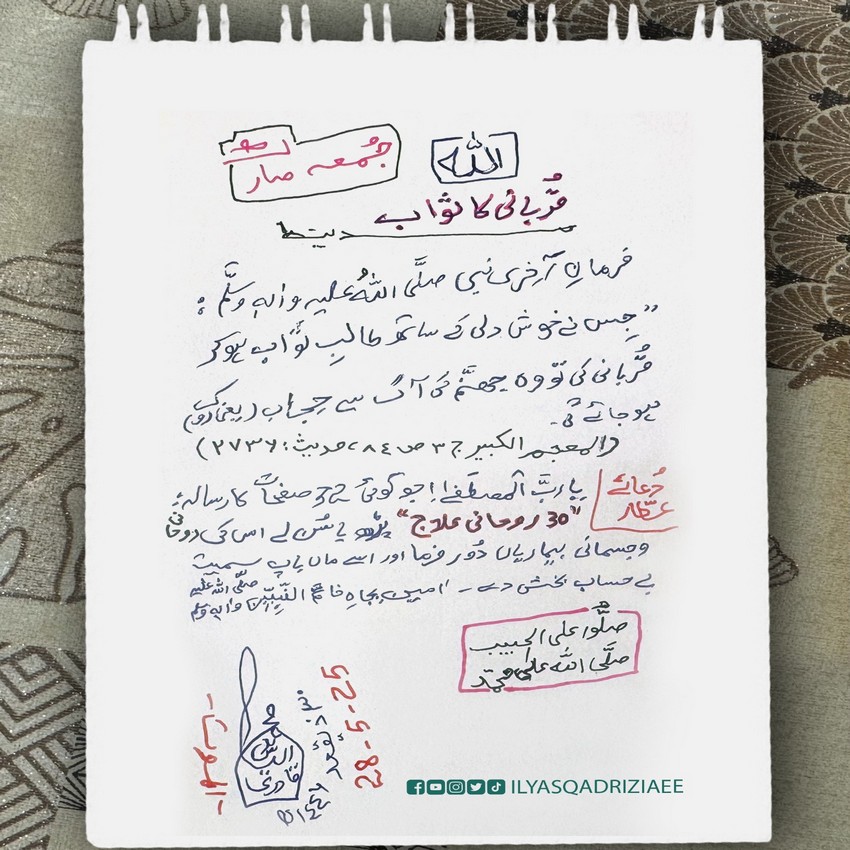 اللہ
جُمعہ مبارک
قُربانی کا ثواب
فرمانِ آخری نبی صلَّی اللہُ علیہ واٰلہٖ وسلَّم:
"جس نے خوش دلی کے ساتھ طالبِ ثواب ہو کر
قُربانی کی تو وہ جہنَّم کی آگ سے حِجاب (یعنی روک)
ہو جائے گی۔
(المعجم الکبیر ج ۳ ص ۸۴، حدیث: ۲۷۳۶)
دُعائے عطّار
یا ربَّ المصطَفٰے! جو کوئی 32 صفحات کا رسالہ:
"30 روحانی علاج" پڑھ یا سُن لے اس کی روحانی
و جسمانی بیماریاں دُور فرما اور اسے ماں باپ سمیت
بے حساب بخش دے۔ اٰمین بجاہِ خاتمِ النَّبِیّٖن صلَّی اللہ علیہ واٰلہٖ وسلَّم
صلُّوا علی الحبیب
صلَّی اللہ علی محمّد
محمد الیاس قادری
28-5-25
ILYASQADRIZIAEE